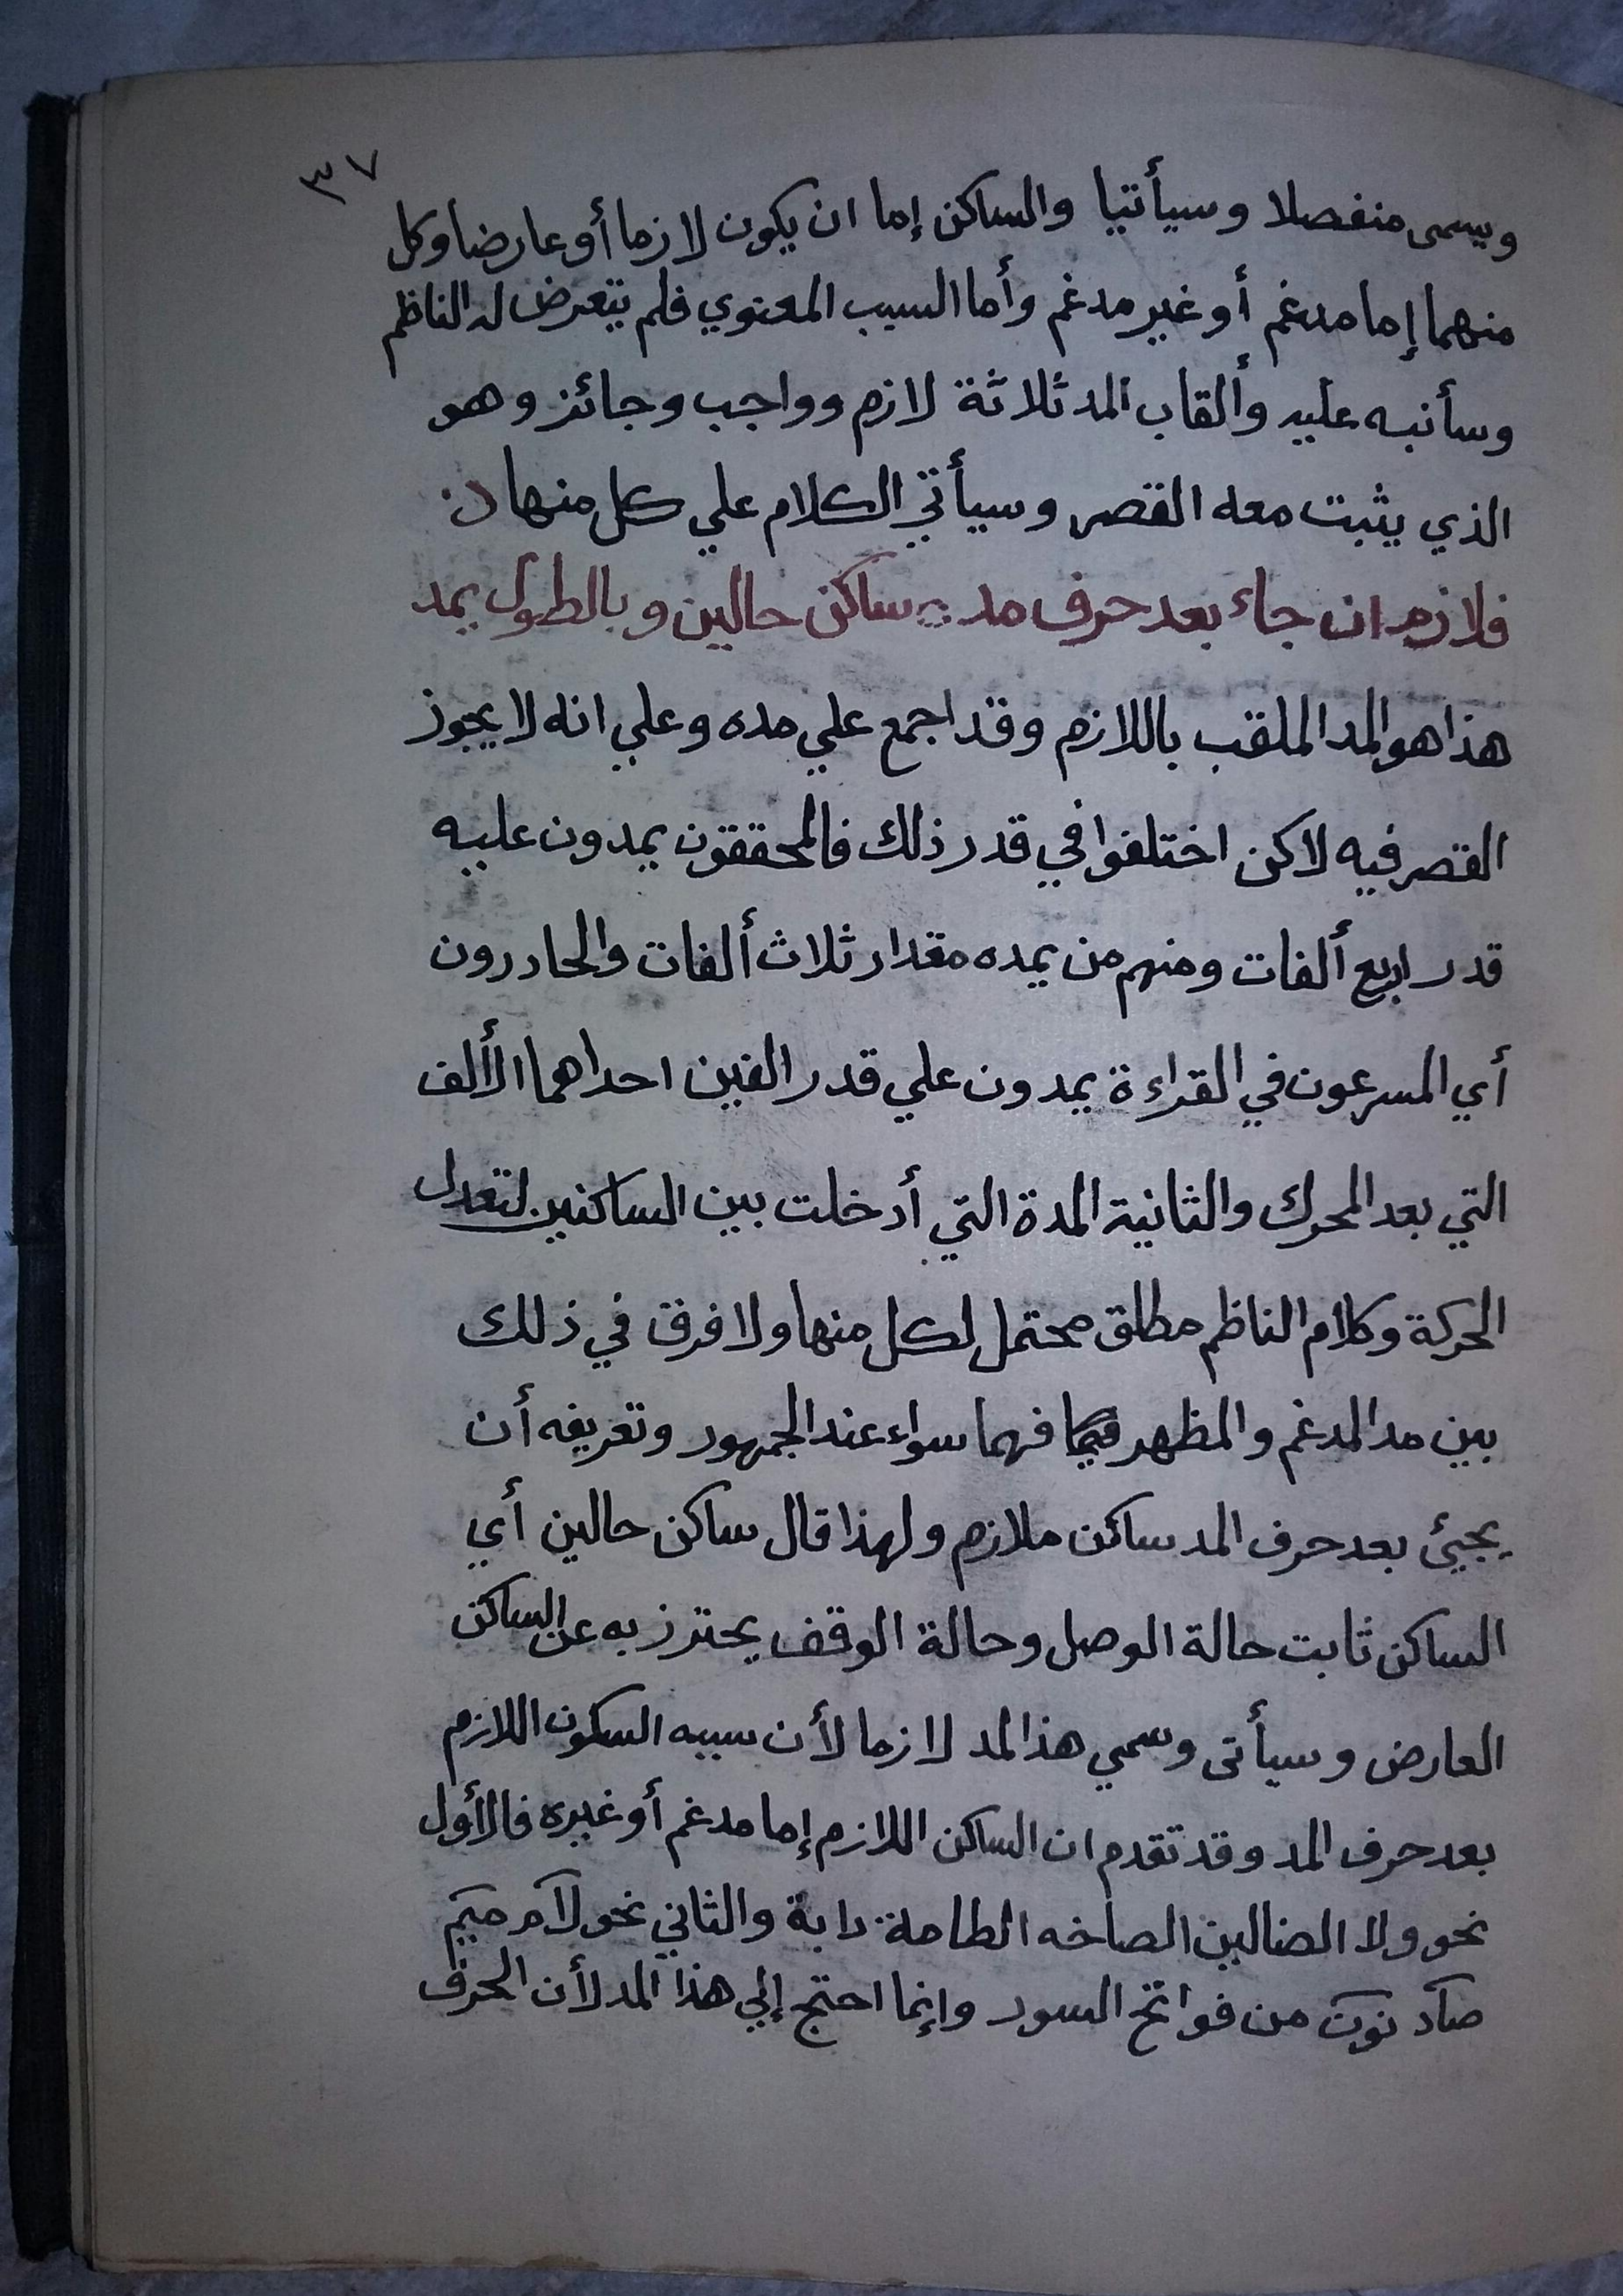 ٣٧
ويسمى منفصلا وسيأتيا والساكن إما ان يكون لازما أو عارضا وكل
منهما إما مدغم أو غير مدغم وأما السبب المعنوي فلم يتعرض له الناظم
وسأنبه عليه وألقاب المد ثلاثة لازم وواجب وجائز وهو
الذي يثبت معه القصر وسيأتي الكلام علي كل منها
فلازم ان جاء بعد حرف مد ساكن حالين وبالطول يمد
هذا هو المد الملقب باللازم وقد اجمع علي مده وعلي انه لا يجوز
القصر فيه لاكن اختلفوا في قدر ذلك فالمحققون يمدون عليه
قدر اربع ألفات ومنهم من يمده مقدار ثلاث ألفات والحادرون
أي المسرعون في القراءة يمدون علي قدر الفين احداهما الألف
التي بعد المحرك والثانية المدة التي أدخلت بين الساكنين لتعدل
الحركة وكلام الناظم مطلق محتمل لكل منها ولا فرق في ذلك
بين مد المدغم والمظهر فهما سواء عند الجمهور وتعريفه أن
يجيئ بعد حرف المد ساكن ملازم ولهذا قال ساكن حالين أي
الساكن ثابت حالة الوصل وحالة الوقف يحترز به عن الساكن
العارض وسيأتى وسمي هذالمد لازما لأن سببه السكون اللازم
بعد حرف المد وقد تقدم ان الساكن اللازم إما مدغم أو غيره فالأول
نحو ولا الضالين الصاخه الطامة دابة والثاني نحو لآم ميم
صآد نون من فواتح السور وإنما احتج إلي هذا المد لأن الحرف